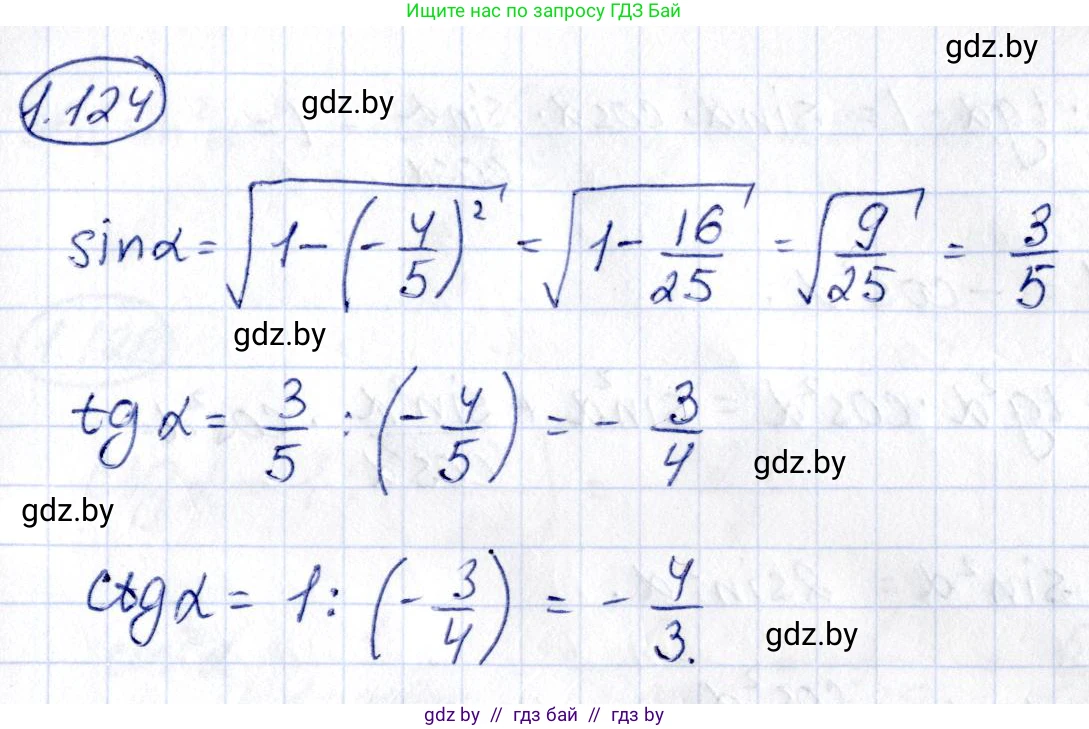 Ищите нас по запросу ГДЗ Бай
gdz.by
1.124
gdz.by
sinα = √(1 - (-4/5)²) = √(1 - 16/25) = √(9/25) = 3/5
gdz.by
tg α = 3/5 : (-4/5) = - 3/4
gdz.by
gdz.by
ctg α = 1 : (-3/4) = - 4/3.
gdz.by
gdz.by // гдз бай // гдз by